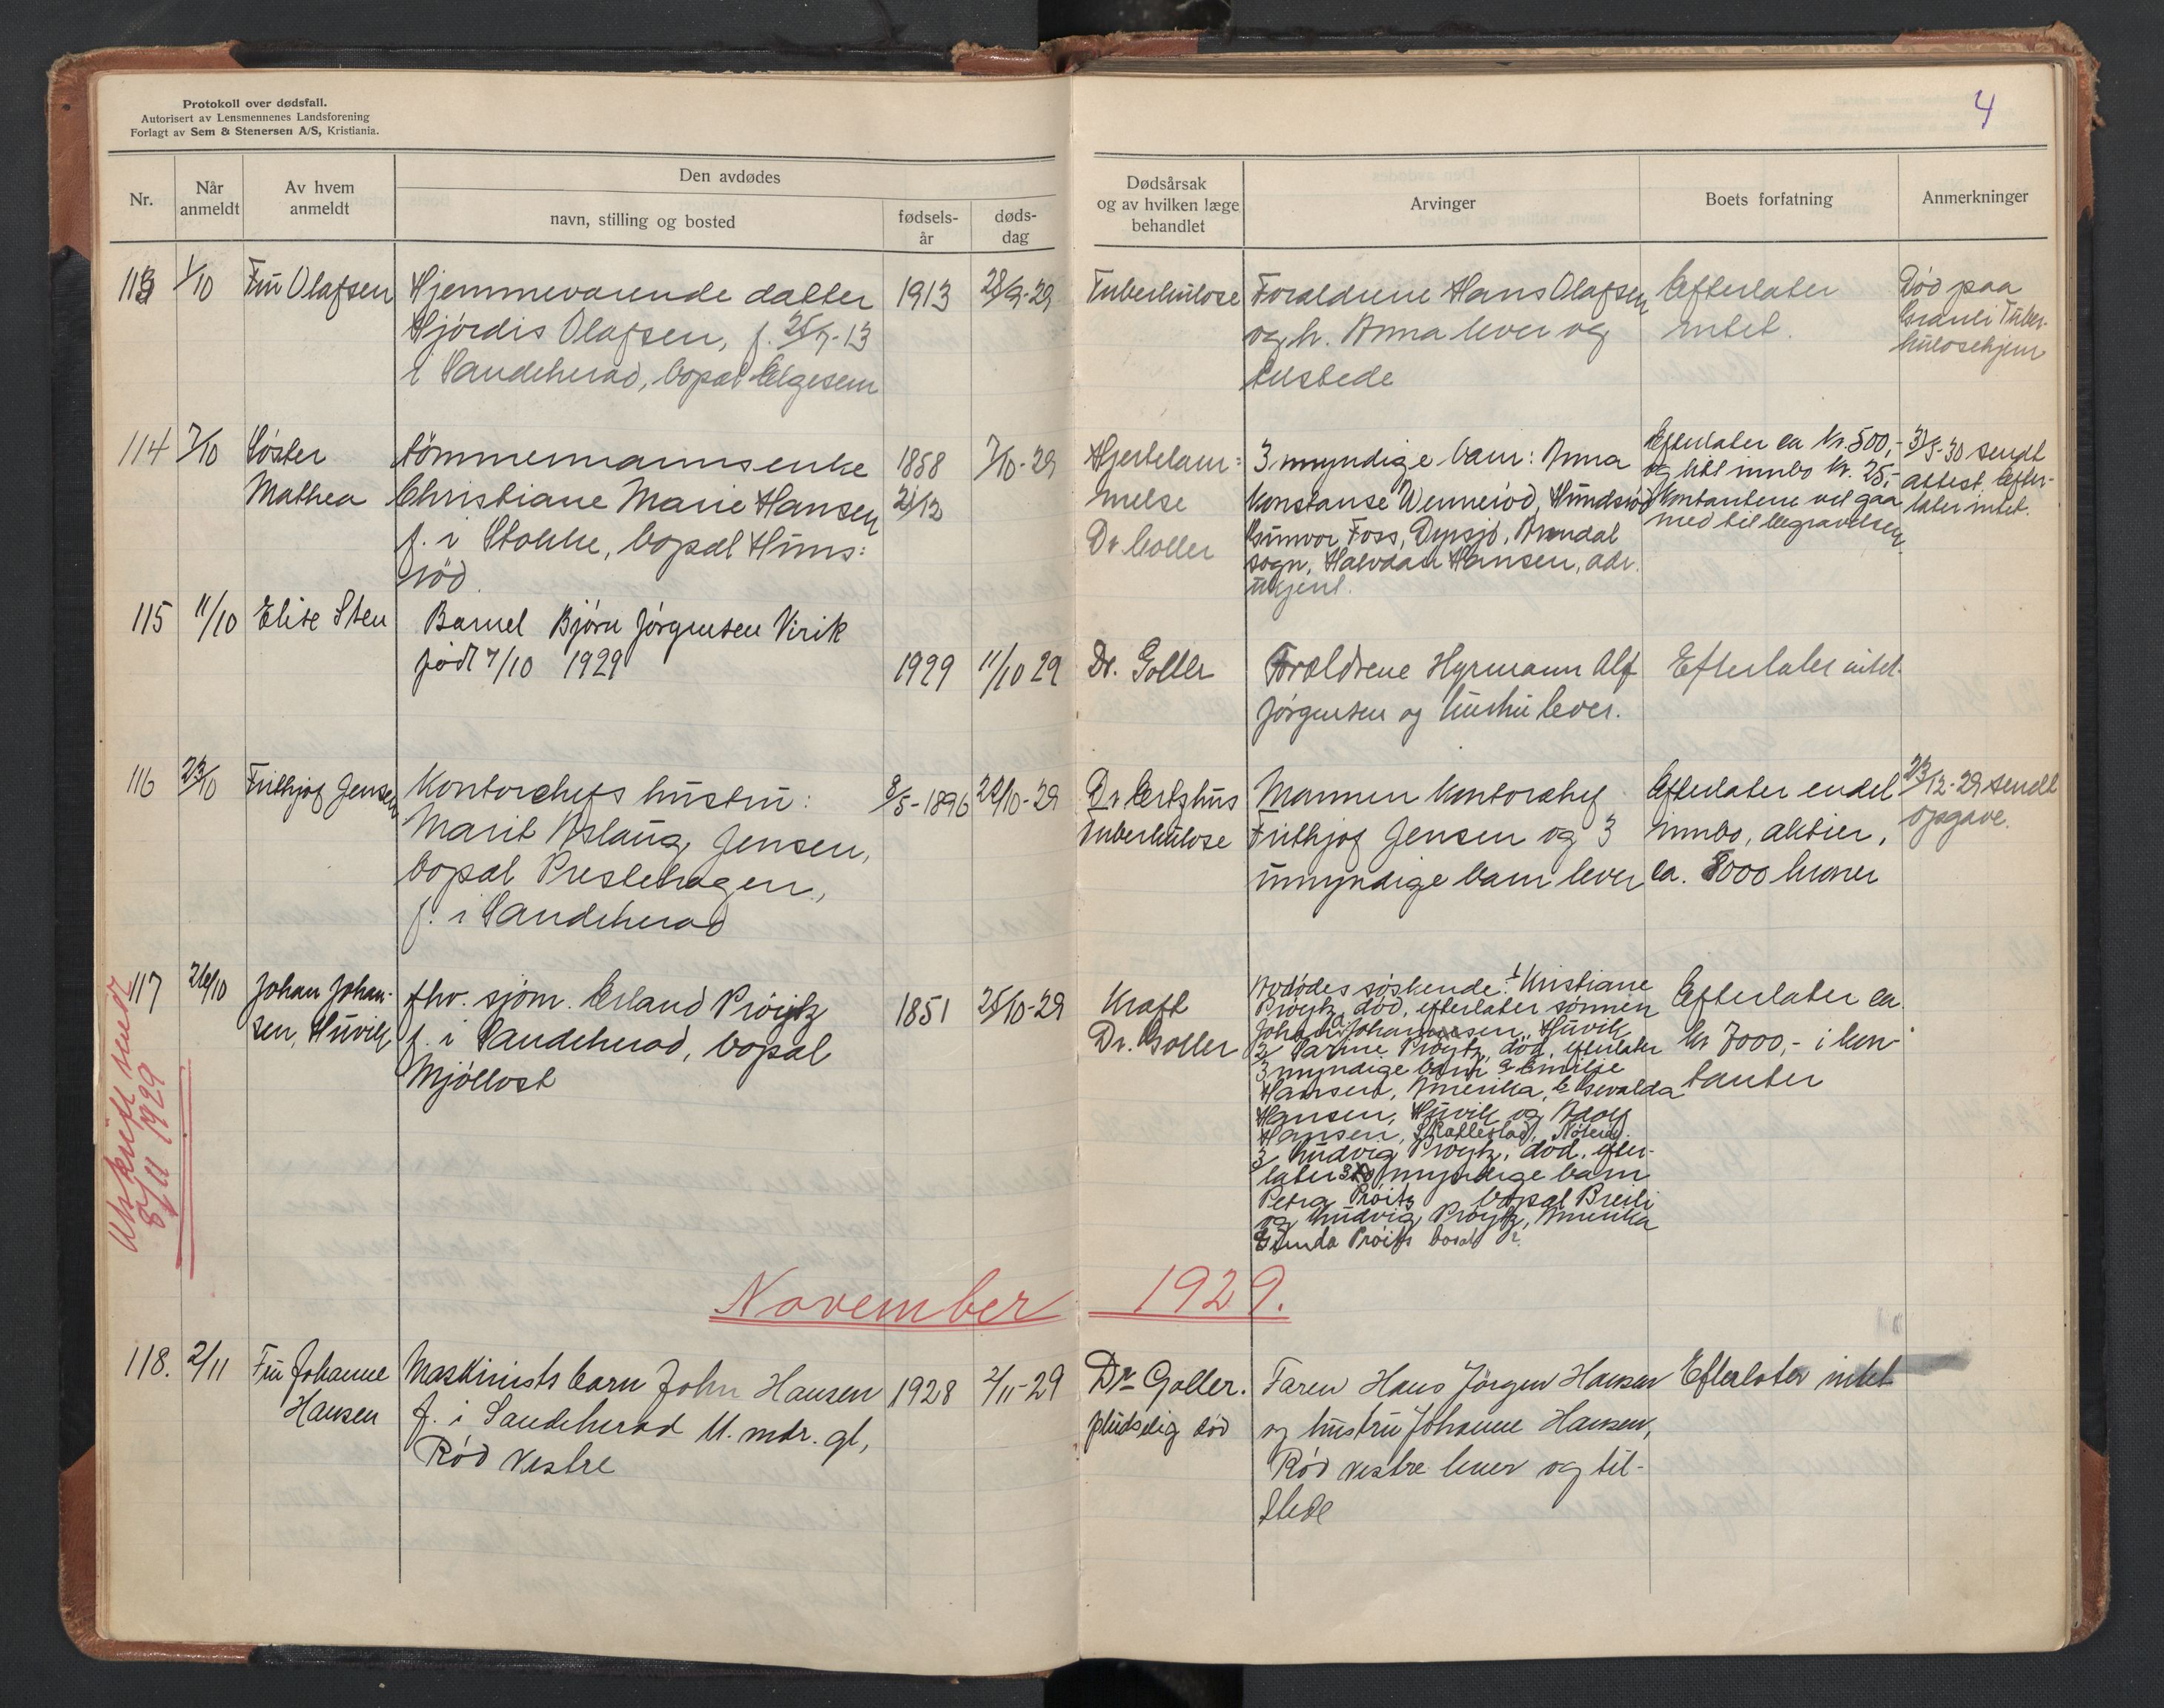 Protokoll over dødsfall.
Autorisert av Lensmennenes Landsforening
Forlagt av Sem & Stenersen A/S, Kristiania.
4
Nr.
Når
anmeldt
Av hvem
anmeldt
Den avdødes
navn, stilling og bosted
fødsels-
år
døds-
dag
Dødsårsak
og av hvilken læge
behandlet
Arvinger
Boets forfatning
Anmerkninger
113
1/10
Fru Olafsen
Hjemmeværende datter
Hjørdis Olafsen, f. 25/7-13
i Sandeherad, bopæl Elgesem
1913
28/9-29
Tuberkulose
Foraldrene Hans Olafsen
og h. Anna lever og
tilstede
Efterlater
intet.
Død paa
Granli Tuber-
kulosehjem
114
7/10
Søster
Mathea
tömmermannsenke
Christiane Marie Hansen
f. i Stokke, bopæl Huns:
rød
1858
21/12
7/10-29
Hjertelam:
melse
Dr Goller
3 myndige barn: Anna
Konstanse Wennerød, Hundsrød
Gunvor Foss, Dypsjö, Arendal
sogn, Halvdan Hansen, adr.
ukjent.
Efterlater ca kr. 500,-
og litt innbo kr. 25,-
Kontantene vil gaa
med til begravelsen
31/5-30 sendt
attest. Efter-
later intet.
115
11/10
Elise Sten
Barnet Bjørn Jørgensen Virik
født 7/10 1929
1929
11/10 29
Dr. Goller
Forældrene Hyrmann Alf
Jørgensen og hustru lever.
Efterlater intet.
116
23/10
Frithjof Jensen
Kontorchefs hustru:
Marit Aslaug Jensen,
bopæl Prestehagen,
f. i Sandeherad
8/5-1896
22/10-29
Dr Bertzhus
Tuberkulose
Mannen Kontorchef
Frithjof Jensen og 3
umyndige barn lever
Efterlater endel
innbo, aktier,
ca. 8000 kroner
23/12-29 sendt
opgave.
117
26/10
Johan Johan-
sen, Huvik
fhv. sjöm. Erland Pröytz
f. i Sandeherad, bopæl
Mjöllost
1851
25/10-29
Kræft
Dr. Goller
Avdødes søskende: 1 Kristiane
Pröytz, död, efterlater sønnen
Johan Johannesen, Huvik
2 Sarine Pröytz, död, efterlater
3 myndige barn a Emilie
Hansen, Amerika, b Gevalda
Hansen, Huvik og Adolf
Hansen, Skallestad, Nøterø.
3 Ludvig Pröytz, død, efter-
later 3 myndige barn
Petra Pröitz bopæl Breili
og Ludvig Pröytz, Amerika
Gunda Pröitz bosatt ?
Efterlater ca.
kr 7000,- i kon-
tanter
Utskrift sendt
8/11 1929
November 1929.
118.
2/11
Fru Johanne
Hansen
Maskinists barn John Hansen
f. i Sandeherad 11. mdr. gl,
Rød vestre
1928
2/11-29
Dr Goller.
pludselig død
Faren Hans Jörgen Hansen
og hustru Johanne Hansen,
Rød vestre lever og til-
stede
Efterlater intet